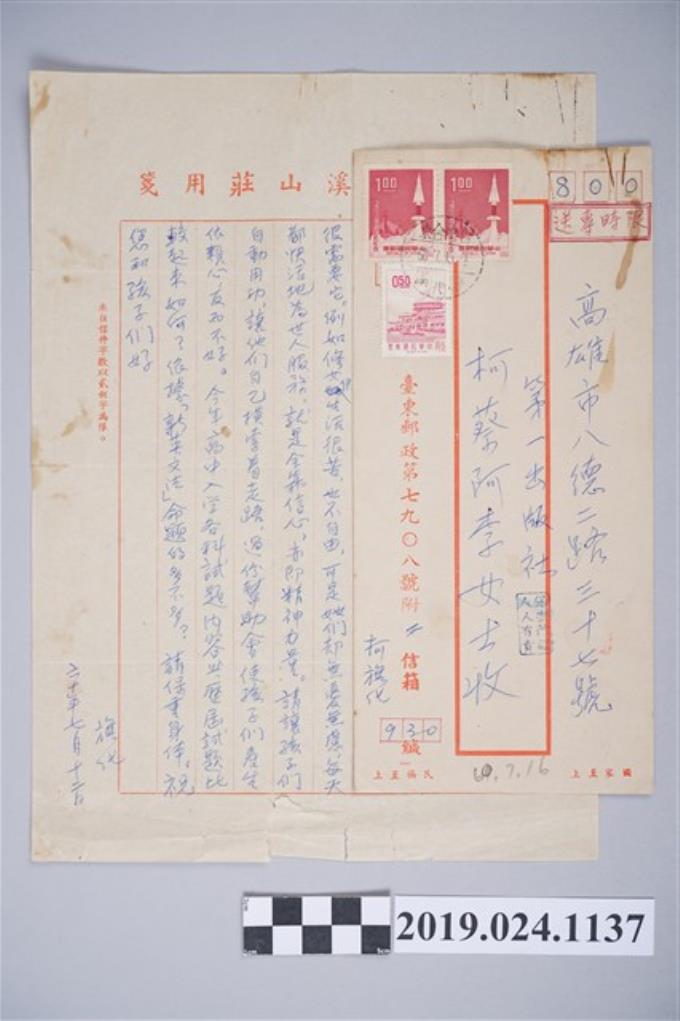 溪山莊用箋
很需要它。例如修女生活很苦,也不自由,可是她們却無憂無慮,每天
都快活地為世人服務。就是全靠信心,亦即精神力量。請讓孩子們
自動用功,讓他們自己摸索着走路。過份幫助會使孩子們產生
依賴心,反而不好。今年高中入学各科試題內容與歷屆試題比
較起來如何?依據「新英文法」命題的多不多?請保重身体。祝
您和孩子們好
旗化
六十年七月十二日
本自信件字數以貳佰字為限。
800
限時專送
高雄市八德二路三十七號
第一出版社
柯蔡阿李女士收
臺東郵政第七九〇八號附 信箱
柯旗化
緘
930
國家至上
民族至上
60.7.16
1.00
1.00
0.50
中華民國郵票
2019.024.1137